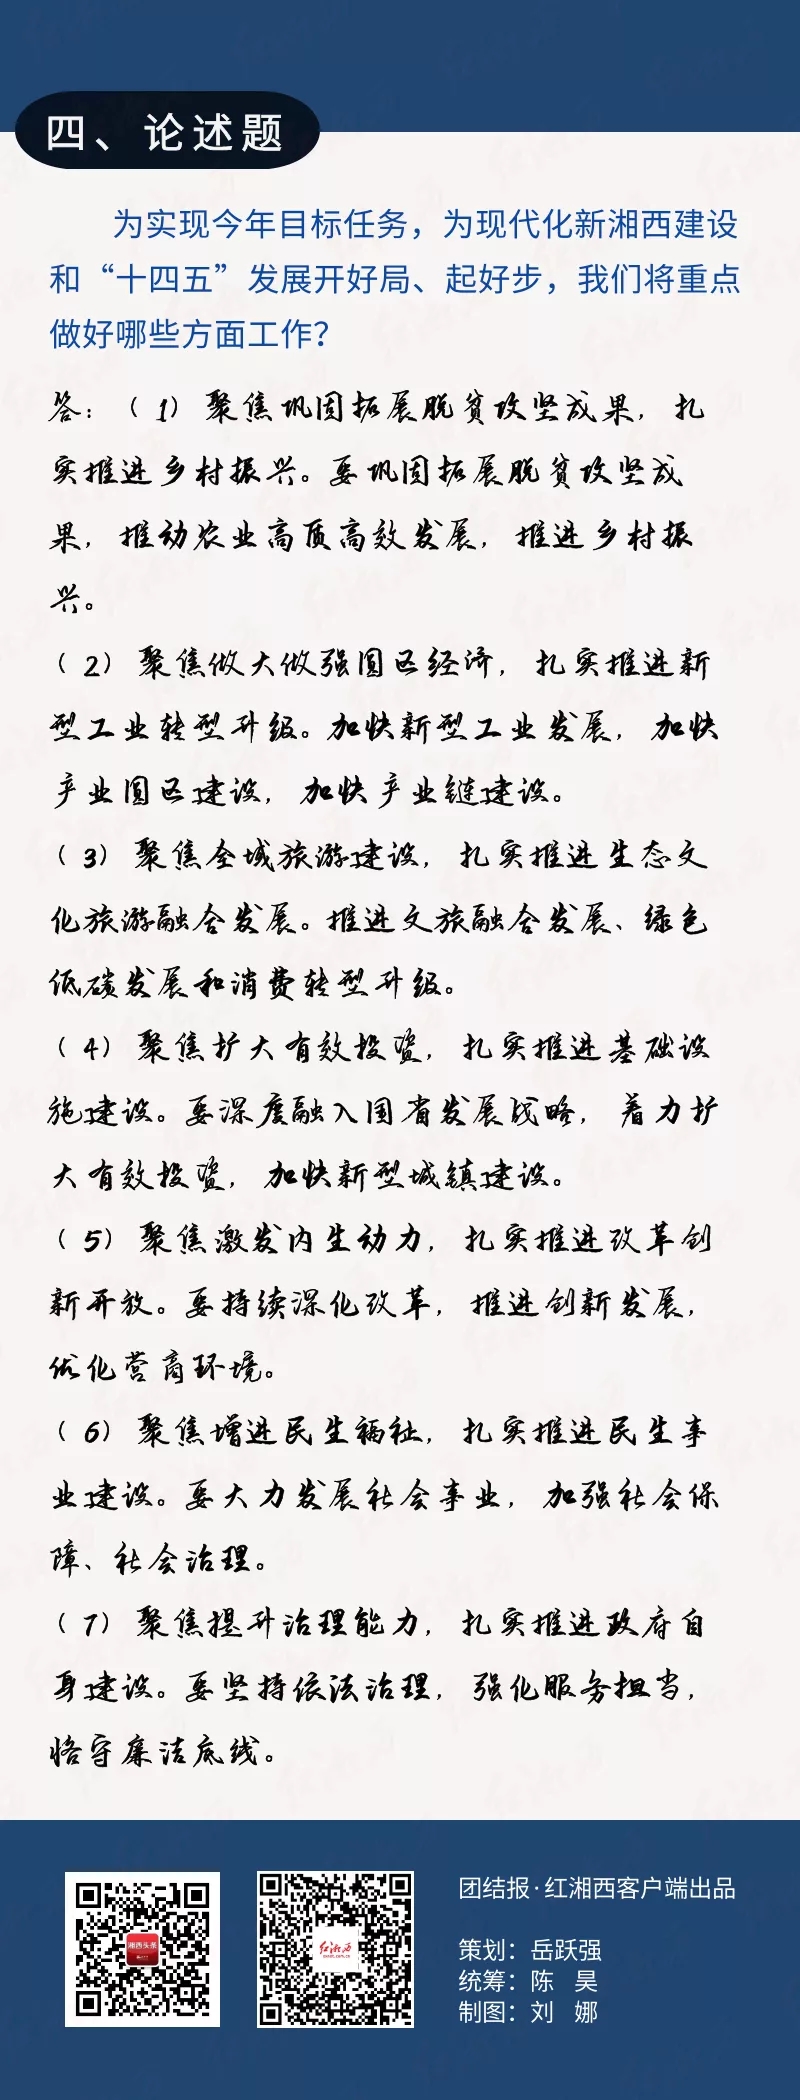 四、论述题
为实现今年目标任务，为现代化新湘西建设
和“十四五”发展开好局、起好步，我们将重点
做好哪些方面工作？
答：（1）聚焦巩固拓展脱贫攻坚成果，扎
实推进乡村振兴。要巩固拓展脱贫攻坚成
果，推动农业高质高效发展，推进乡村振
兴。
（2）聚焦做大做强园区经济，扎实推进新
型工业转型升级。加快新型工业发展，加快
产业园区建设，加快产业链建设。
（3）聚焦全域旅游建设，扎实推进生态文
化旅游融合发展。推进文旅融合发展、绿色
低碳发展和消费转型升级。
（4）聚焦扩大有效投资，扎实推进基础设
施建设。要深度融入国省发展战略，着力扩
大有效投资，加快新型城镇建设。
（5）聚焦激发内生动力，扎实推进改革创
新开放。要持续深化改革，推进创新发展，
优化营商环境。
（6）聚焦增进民生福祉，扎实推进民生事
业建设。要大力发展社会事业，加强社会保
障、社会治理。
（7）聚焦提升治理能力，扎实推进政府自
身建设。要坚持依法治理，强化服务担当，
恪守廉洁底线。
湘西头条
红湘西
团结报·红湘西客户端出品
策划：岳跃强
统筹：陈 昊
制图：刘 娜